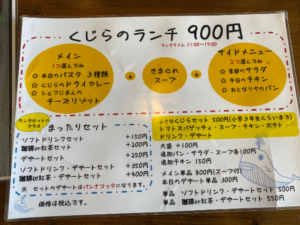 くじらのランチ 900円
ランチタイム 11:00~17:00
メイン
1つ選んでね
☆ 本日のパスタ 3種類
☆ くじらのドライカレー
☆ シェフはまんの
チーズリゾット
+
きまぐれ
スープ
+
サイドメニュー
2つ選んでね
☆ 季節のサラダ
☆ 今日のチキン
☆ おとなりやのパン
ランチセットに
プラス
まったりセット
ソフトドリンクセット +150円
珈琲or紅茶セット +200円
デザートセット +250円
ソフトドリンク・デザートセット +350円
珈琲or紅茶・デザートセット +400円
※ セットのデザートはパンナコッタになります。
価格は税込です。
こくじらセット 500円(小学3年生くらいまで)
トマトスパゲッティ・スープ・チキン・ポテト
ドリンク・デザート
大盛 +100円
追加パン・サラダ・スープ各100円
追加チキン 150円
メイン単品 800円(スープ付)
本日のデザート単品 300円
単品 ソフトドリンク・デザートセット 500円
単品 珈琲or紅茶・デザートセット 550円